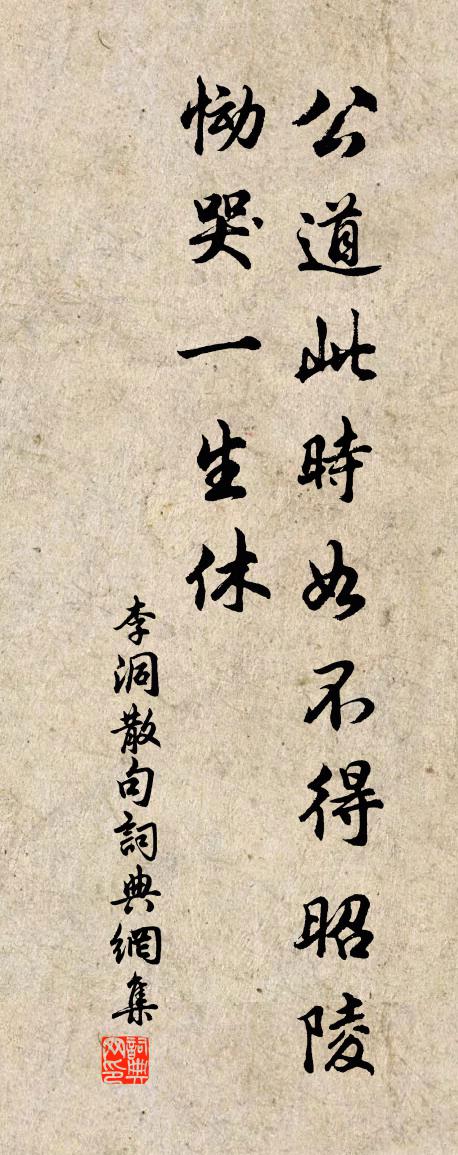 公道此時如不得昭陵
慟哭一生休
李洞散句詞典網集
詞典網印